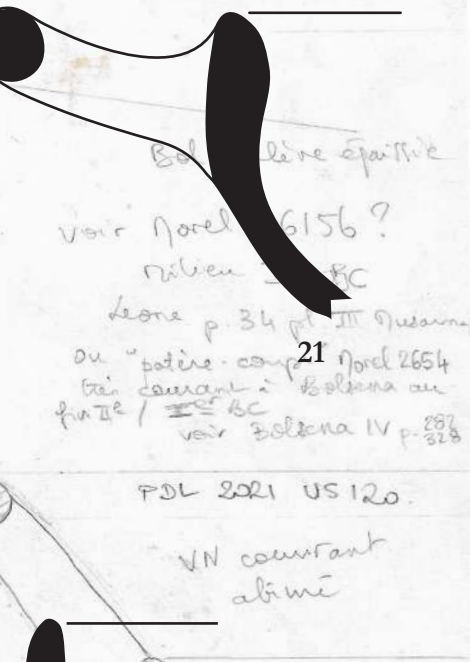 Bol lèvre épaissie
voir Morel 6156 ?
milieu BC
Leone p. 34 pl III Musarna
21
Ou "patère-coupe" Morel 2654
très courant à Bolsena au
fin IIe / BC
voir Bolsena IV p. 282
328
PDL 2021 US 120.
VN courant
abimé